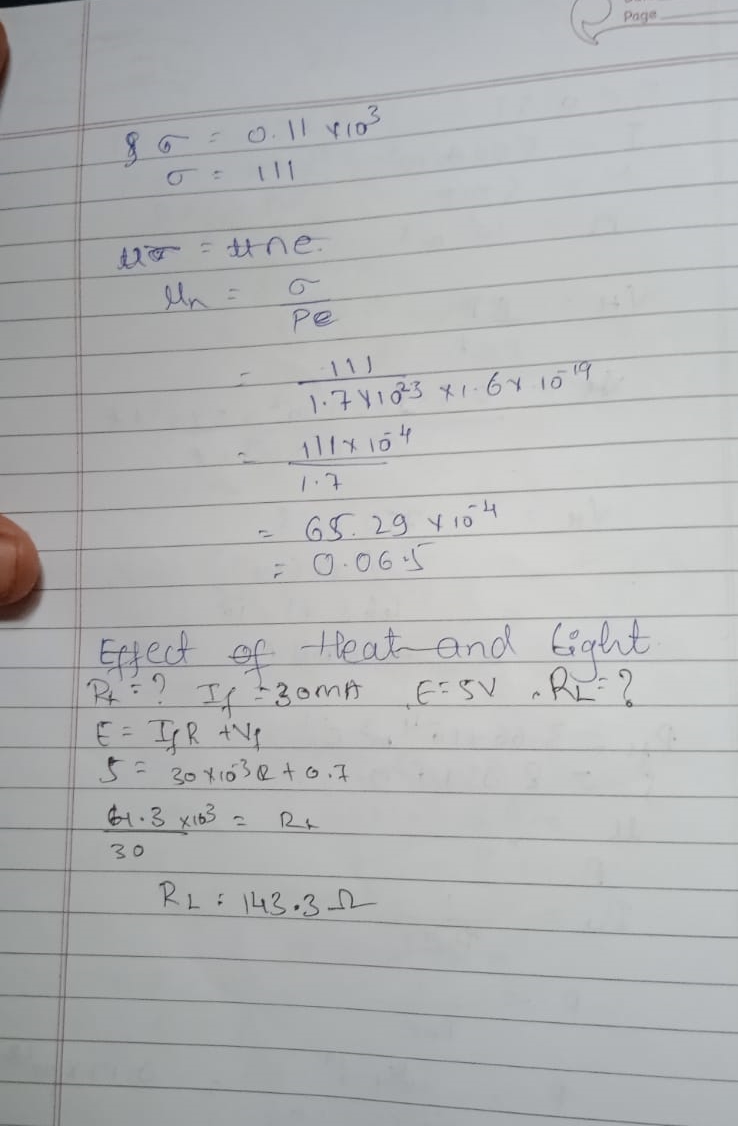 Page
σ = 0.11 × 10³
σ = 111
= μne.
μₙ = σ / Pe
= 111 / 1.7×10²³ × 1.6 × 10⁻¹⁹
= 111 × 10⁻⁴ / 1.7
= 65.29 × 10⁻⁴
= 0.065
Effect of Heat and Light
= ? If = 30mA , E = 5V , RL = ?
E = IfR + Vf
5 = 30×10⁻³R + 0.7
4.3 ×10³ / 30 =
RL = 143.3 Ω